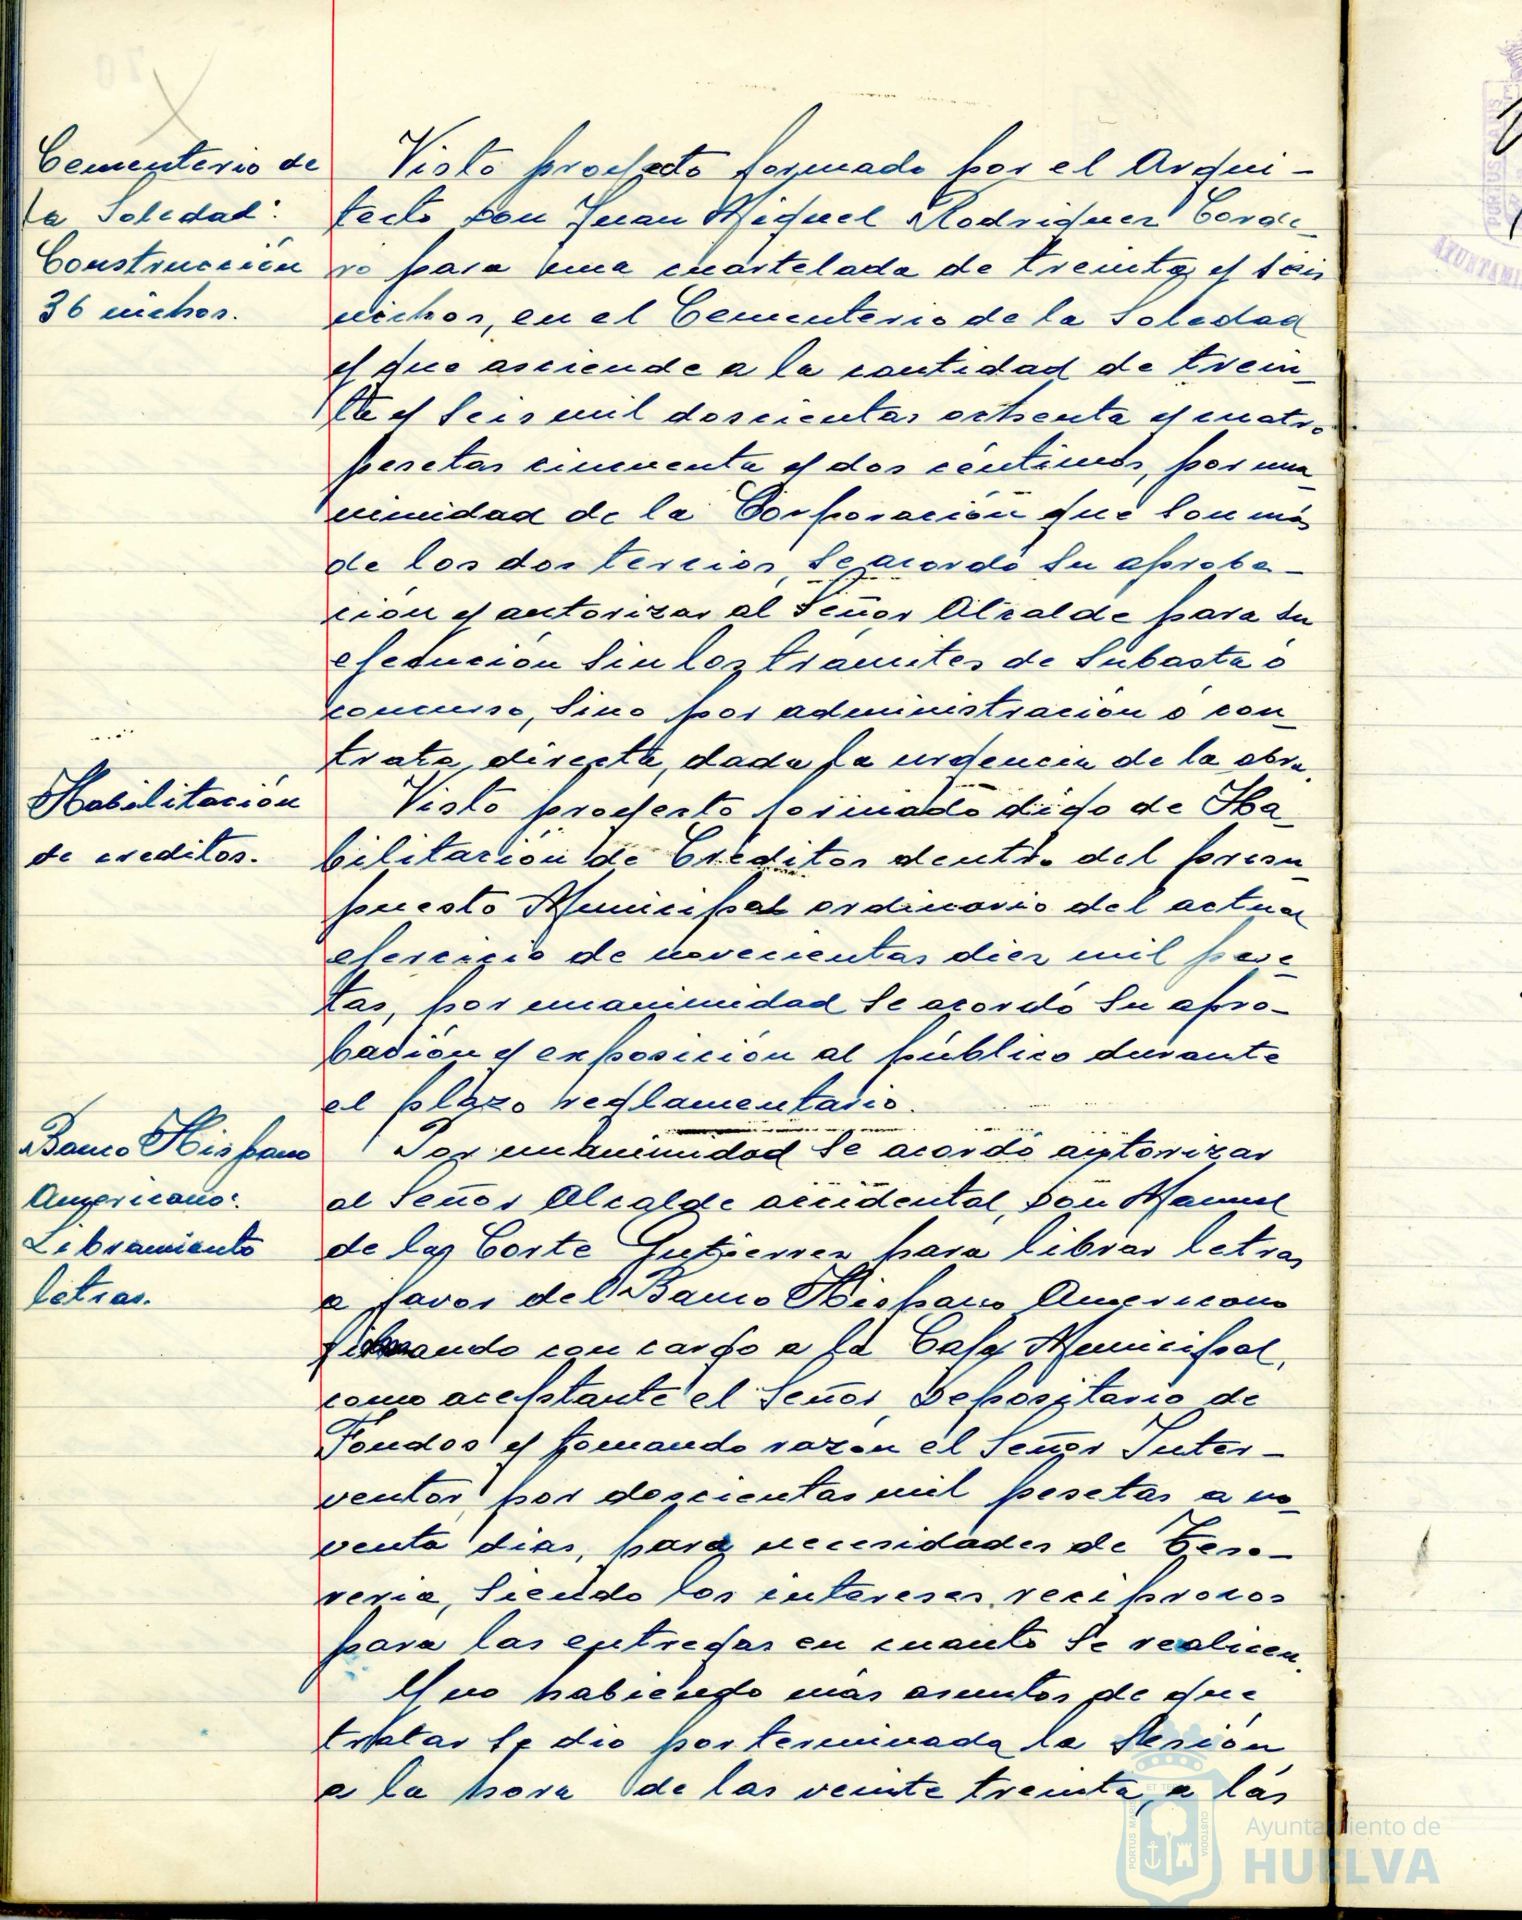 Cementerio de
la Soledad:
Construcción
36 nichos.
Visto proyecto formado por el Arqui-
tecto Don Juan Miguel Rodriguez Corde-
ro para una cuartelada de treinta y seis
nichos, en el Cementerio de la Soledad
y que asciende a la cantidad de trein-
ta y seis mil doscientas ochenta y cuatro
pesetas cincuenta y dos céntimos, por una-
nimidad de la Corporación que son más
de los dos tercios, se acordó su aproba-
ción y autorizar al Señor Alcalde para su
ejecución sin los trámites de Subasta ó
concurso, sino por administración ó con-
trata directa, dada la urgencia de la obra.
Habilitación
de creditos.
Visto proyecto formado digo de Ha-
bilitación de Creditos dentro del presu-
puesto Municipal ordinario del actual
ejercicio de novecientas diez mil pese-
tas, por unanimidad se acordó su apro-
bación y exposición al público durante
el plazo reglamentario.
Banco Hispano
Americano:
Libramiento
letras.
Por unanimidad se acordó autorizar
al Señor Alcalde accidental, Don Manuel
de la Corte Gutierrez para librar letras
a favor del Banco Hispano Americano
firmando con cargo a la Caja Municipal,
como aceptante el Señor Depositario de
Fondos y tomando razón el Señor Inter-
ventor, por doscientas mil pesetas a no-
venta dias, para necesidades de Teso-
reria, siendo los intereses reciprocos
para las entregas en cuanto se realicen.
Y no habiendo más asuntos de que
tratar se dio por terminada la Sesión
a la hora de las veinte treinta, a las
Ayuntamiento de
HUELVA